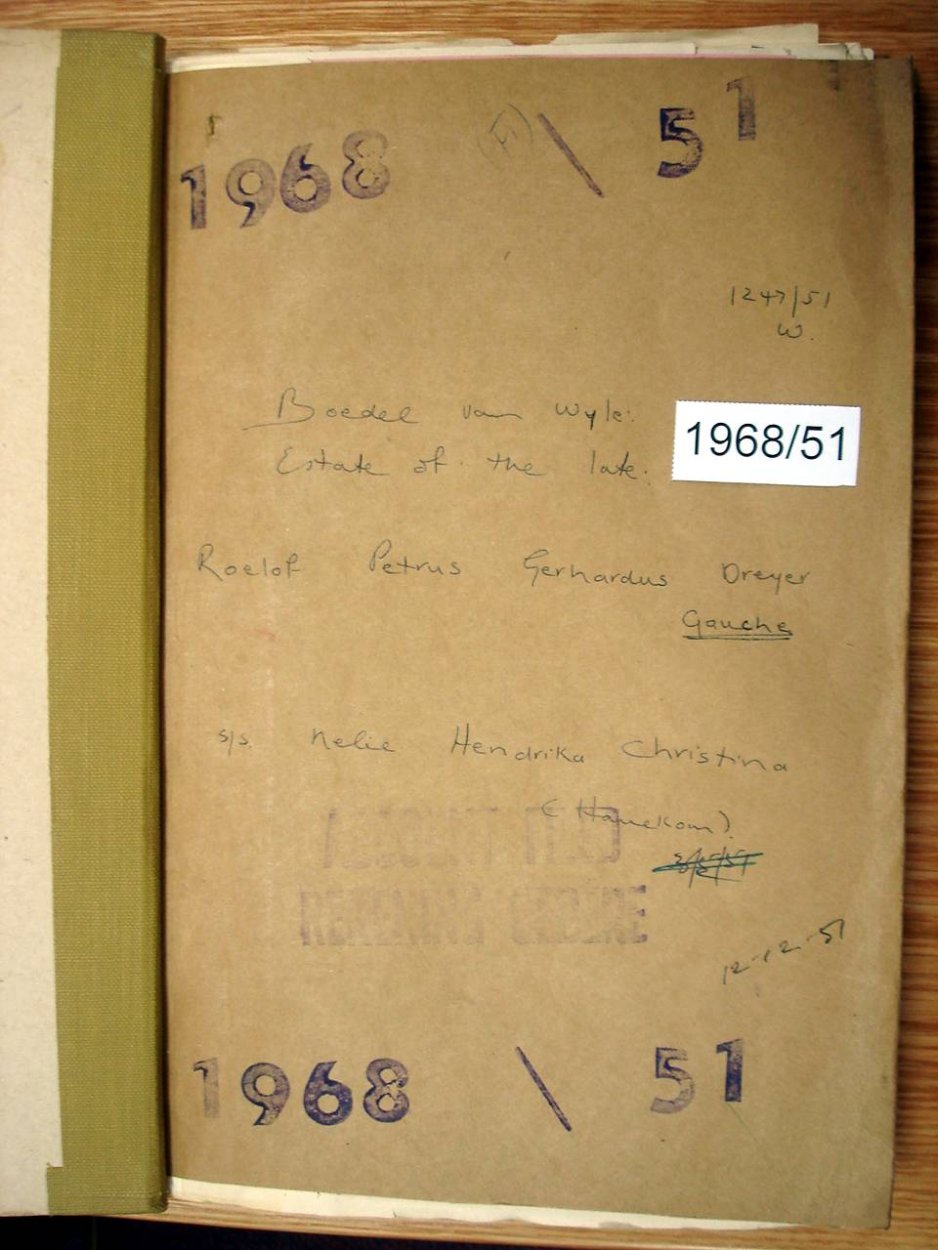 1968 \ 51
1247/51
W.
Boedel van Wyle:
Estate of the late:
1968/51
Roelof Petrus Gerhardus Dreyer
Gauche
s/s. Nelie Hendrika Christina
(Hanekom).
ACCOUNT FILED
REKENING GEDIENE
12-12-51
1968 \ 51